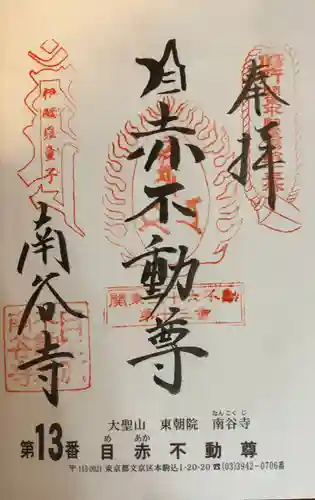 奉拝
目赤不動尊
南谷寺
伊醯羅童子
関東三十六不動
第十三番
大聖山 東朝院 南谷寺
なんこくじ
第13番 目赤不動尊
め あか
〒113-0021 東京都文京区本駒込1-20-20 ☎(03)3942-0706番